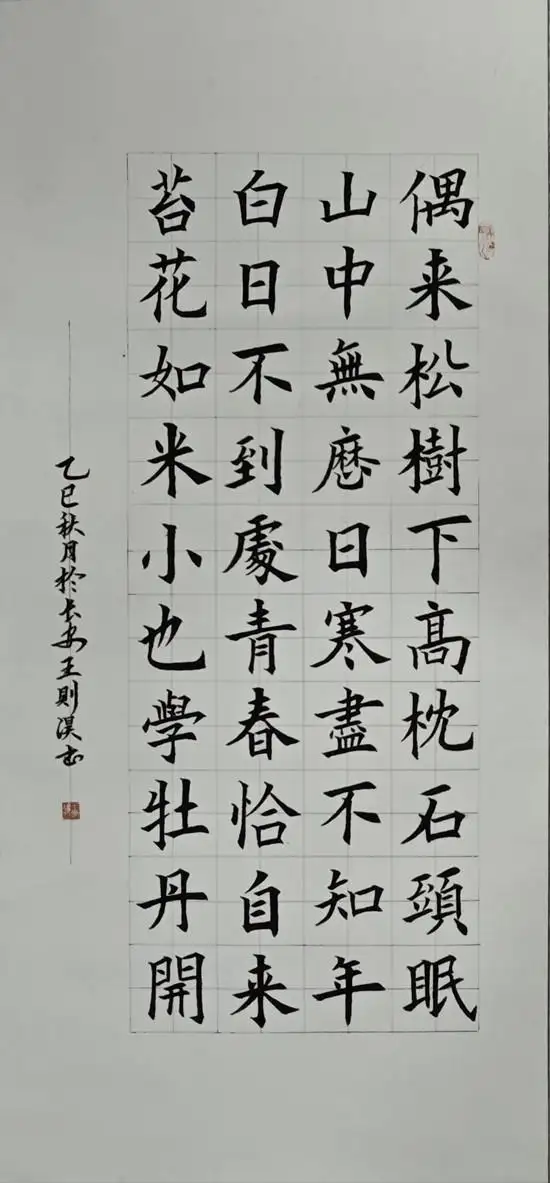 偶来松樹下高枕石頭眠
山中無暦日寒盡不知年
白日不到處青春恰自来
苔花如米小也學牡丹開
乙巳秋月於长安王则淏书